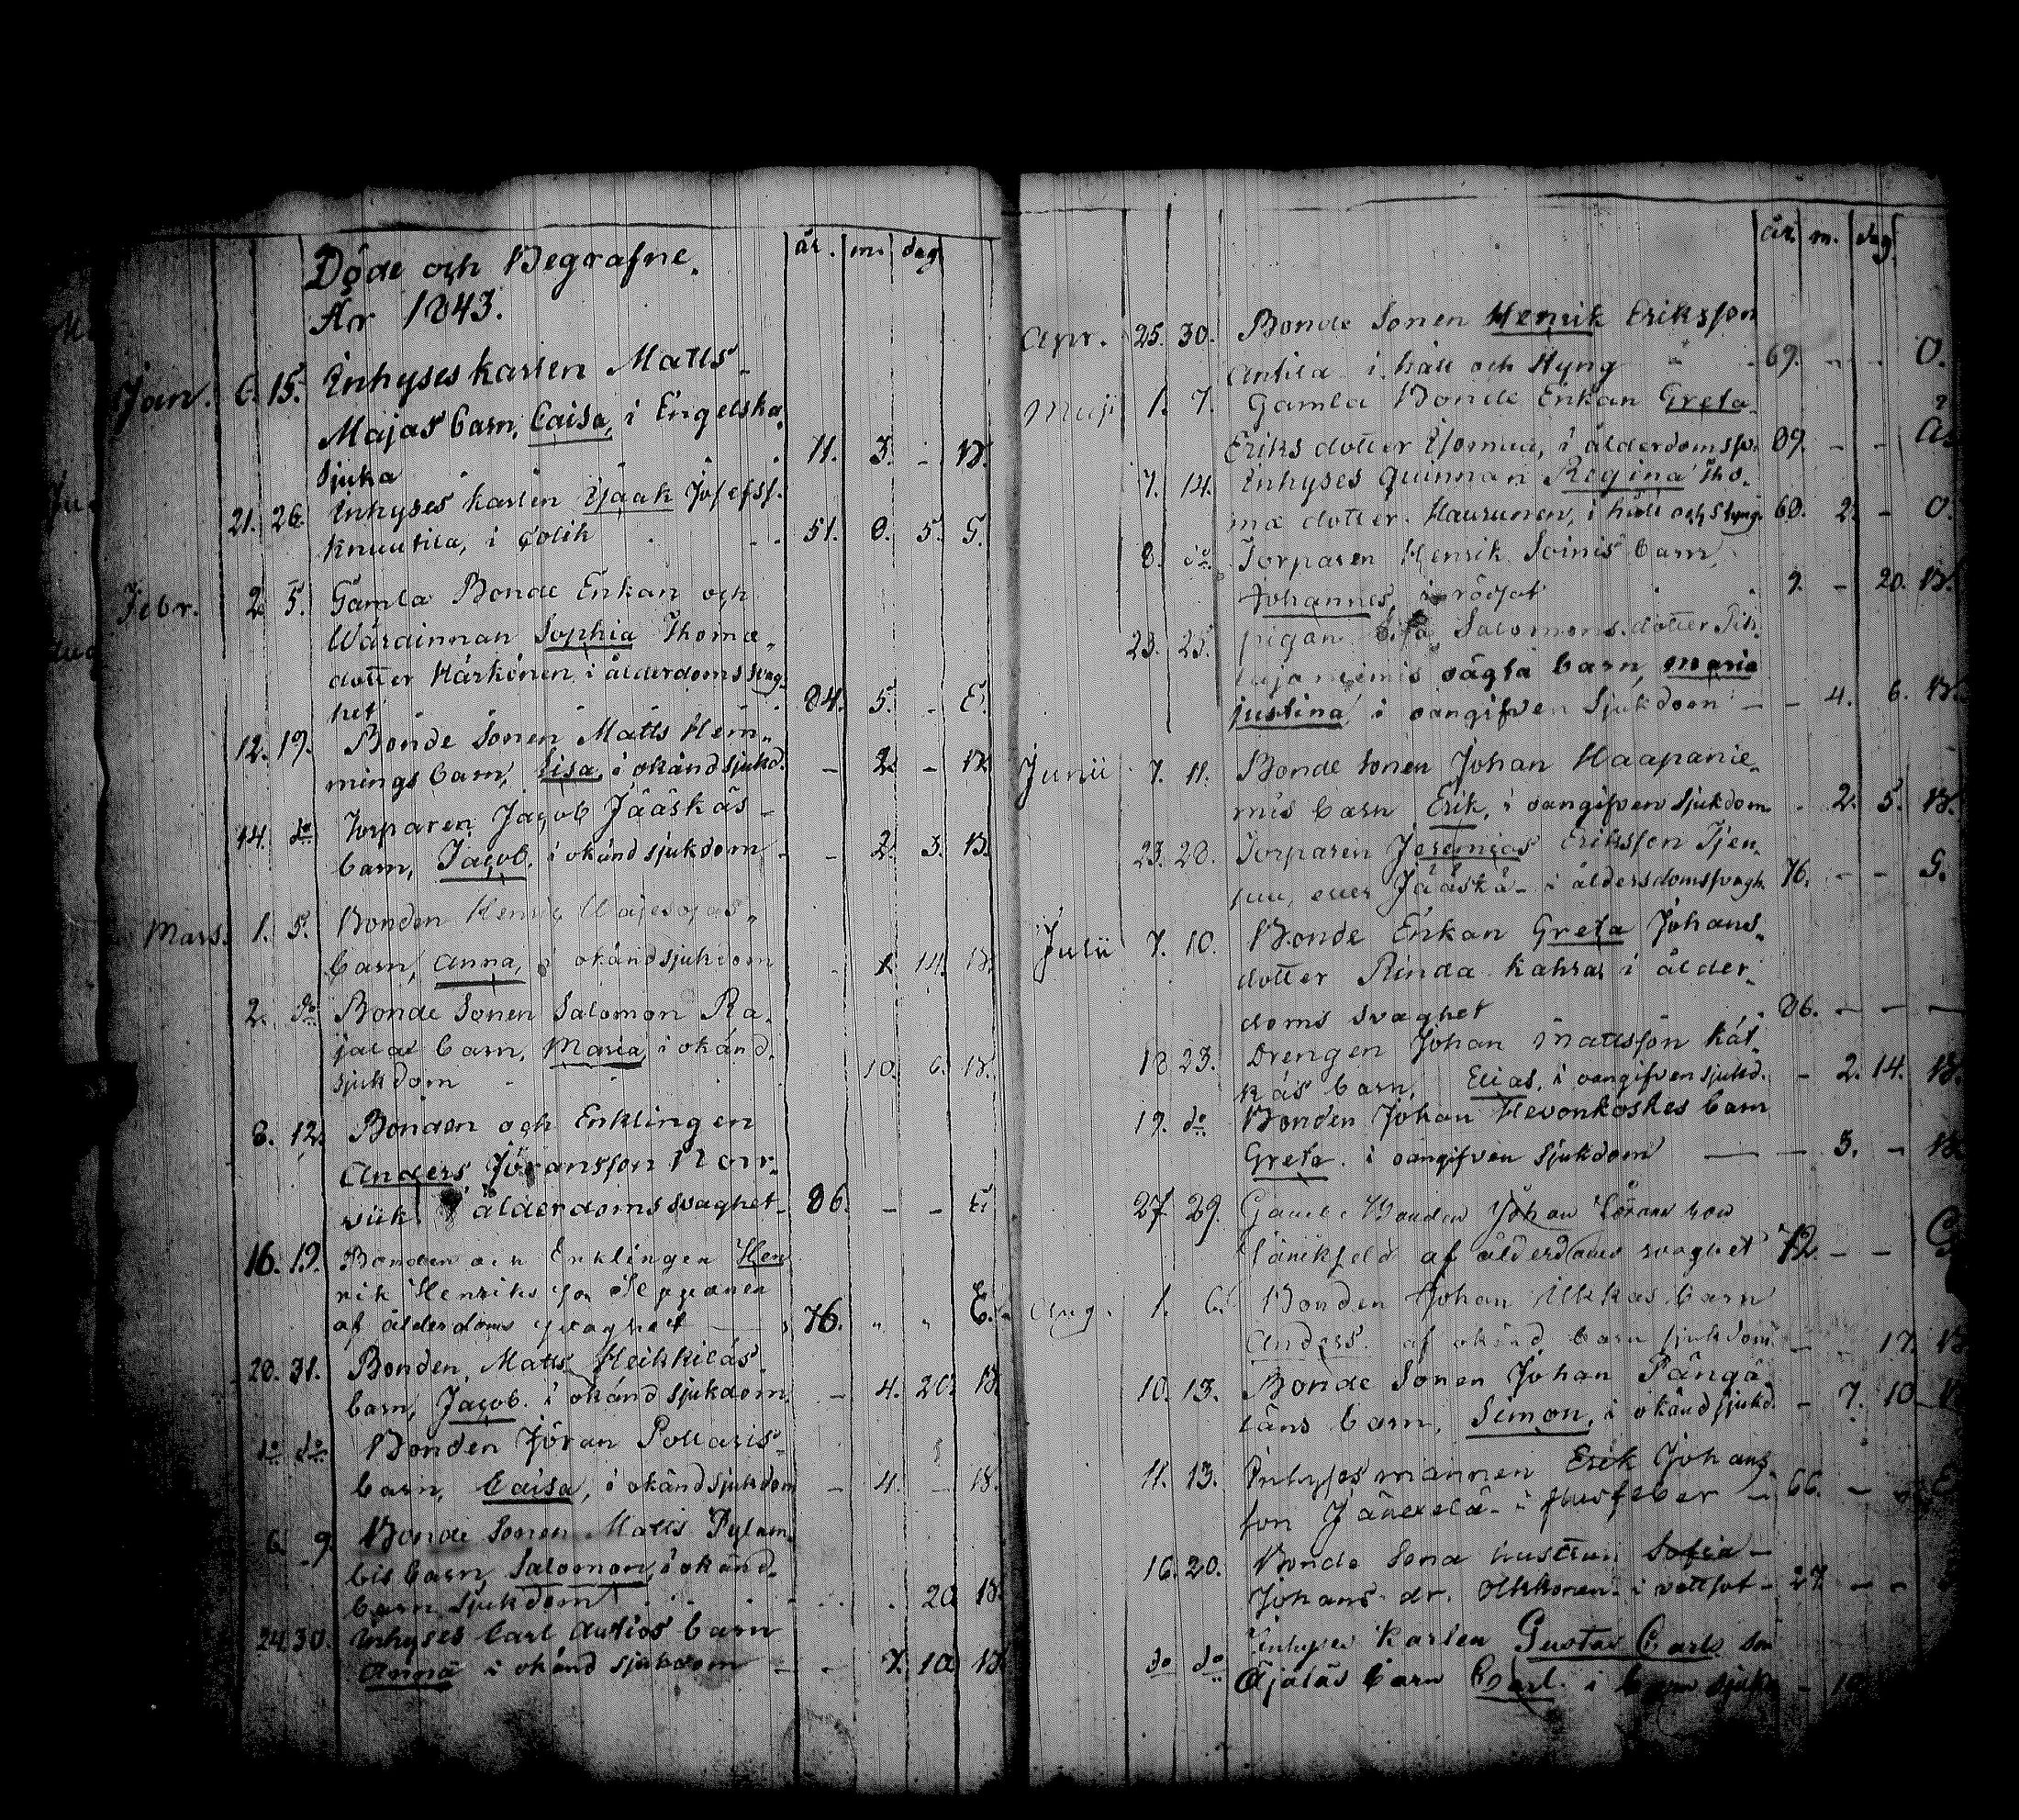 Döde och Begrafne.
År 1843.
år. m. dag
Jan. 6. 15. Enhyses karlen Matts
Majas barn, Caisa, i Engelska
sjuka 11. 3. - B.
21. 26. Enhyses karlen Isaak Josefss.
Knuutila, i Colik 51. 8. 5. G.
Febr. 2. 5. Gamla Bonde Enkan och
Wärdinnan Sophia Thomæ
dotter Härkönen, i ålderdoms svag-
het 84. 5. - E.
12. 19. Bonde Sonen Matts Hem-
mings barn, Lisa, i okänd sjukd. - 2. - B.
14. do Torparen Jacob Jääskäs
barn, Jacob, i okänd sjukdom - 2. 3. B.
Mars. 1. 5. Bonden Henric
barn, Anna, i okänd sjukdom - 1. 14. B.
2. do Bonde Sonen Salomon Ra-
jalas barn, Maria, i okänd
sjukdom 10. 6. B.
8. 12. Bonden och Enklingen
Anders Jöransson Norr-
viik i ålderdoms svaghet 86. - - E
16. 19. Bonden och Enklingen Hen
rik Henriksson Seppänen
af ålderdoms svaghet 76. " " E.
28. 31. Bonden Matts Heikkiläs
barn, Jacob, i okänd sjukdom. - 4. 20. B.
do do Bonden Jöran Pollaris
barn, Caisa, i okänd sjukdom - 4. - B.
6. 9. Bonde Sonen Matts
barn Salomon, i okänd
barn sjukdom 20. B.
24. 30. Inhyses Carl Autios barn
Anna i okänd sjukdom - - 7. 10. B.
år. m. dag.
Apr. 25. 30. Bonde Sonen Henrik Eriksson
Antila i håll och styng 69. - - O.
Maji 1. 7. Gamla Bonde Enkan Greta
Eriks dotter, i ålderdomssv. 89. - -
7. 14. Enhyses Quinnan Regina Tho-
mæ dotter Haurunen, i håll och styng 60. 2. - O.
8. do Torparen Henrik Soinis barn
Johannes, i rödsot 9. - 20. B.
23. 25. pigan Lisa Salomons dotter Pih-
lajaniemis oägta barn, Maria
Justina, i oangifven sjukdom - - 4. 6. B.
Junii 7. 11. Bonde Sonen Johan Haapanie-
mis barn Erik, i oangifven sjukdom - 2. 5. B.
23. 28. Torparen Jeremias Eriksson Tjeu-
puu, eller Jääskä - i ålderdomssvagh. 76. - - G.
Julii 7. 10. Bonde Enkan Greta Johans
dotter Rinda Kahra, i ålder-
doms svaghet 86. - - -
18 23. Drengen Johan Mattsson Kät-
käs barn, Elias, i oangifven sjukd. - 2. 14. B.
19. do Bonden Johan Hevonkoskes barn
Greta. i oangifven sjukdom - - 3. - B.
27. 29. Gamle Bonden Johan Göransson
af ålderdoms svaghet 72. - -
Aug. 1. 6. Bonden Johan Ukkas barn
Anders. af okänd barn sjukdom. - - 17. B
10. 13. Bonde Sonen Johan Pångä-
läns barn, Simon, i okänd sjukd. - 7. 10.
11. 13. Inhyses mannen Erik Johans
son - i 66. -
16. 20. Bonde Sons hustrun Sofia
Johans dr. Ollkkonen - i vattsot - 27 - -
do do Inhyses karlen Gustav Carls son
Äjäläs barn Carl. i barn sjukd. - 10